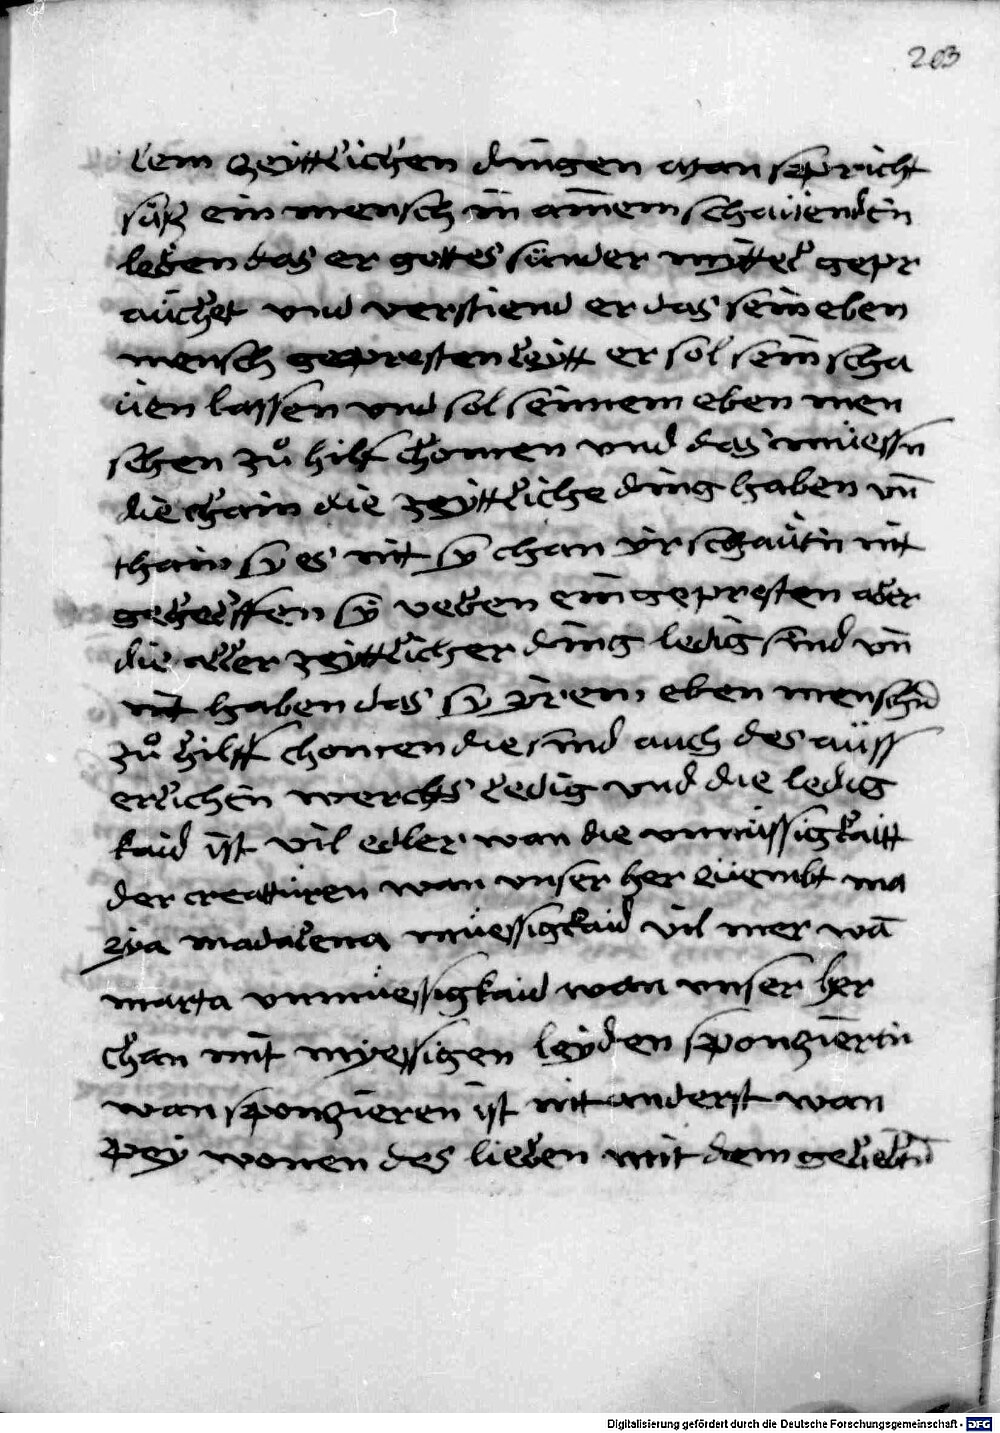 203
lem zeyttlichen dingen man spricht
säß ein mensch in ainem schauenden
leben das er gottes sunder myttel gepr
aüchet vnd verstiend er das sein eben
mensch gepresten leytt er sol sein scha
üen lassen vnd sol seinem eben men
schen zů hilf chomen vnd das müessn
die thain die zeyttliche ding haben vn̄
thain sy es nit sy chan ir schaütin nit
gehelffen sy veben ein gepresten aber
die aller zeyttlicher ding ledig sind vn̄
nit haben das sy irem eben menschn̄
zů hilff chomen die sind auch des aüss
erlichen werchs ledig vnd die ledig
kaid ist vil edler wan die vnmüssigkaitt
der creattüren wan vnser her rüembt ma
rya madalena müessigkaid vil mer wā
marta vnmüessigkaid wan vnser her
chan nit myessigen leyden sponzieren
wan sponzieren ist nit anderst wan
pey wonen des lieben mit dem geliebtn̄
Digitalisierung gefördert durch die Deutsche Forschungsgemeinschaft - DFG